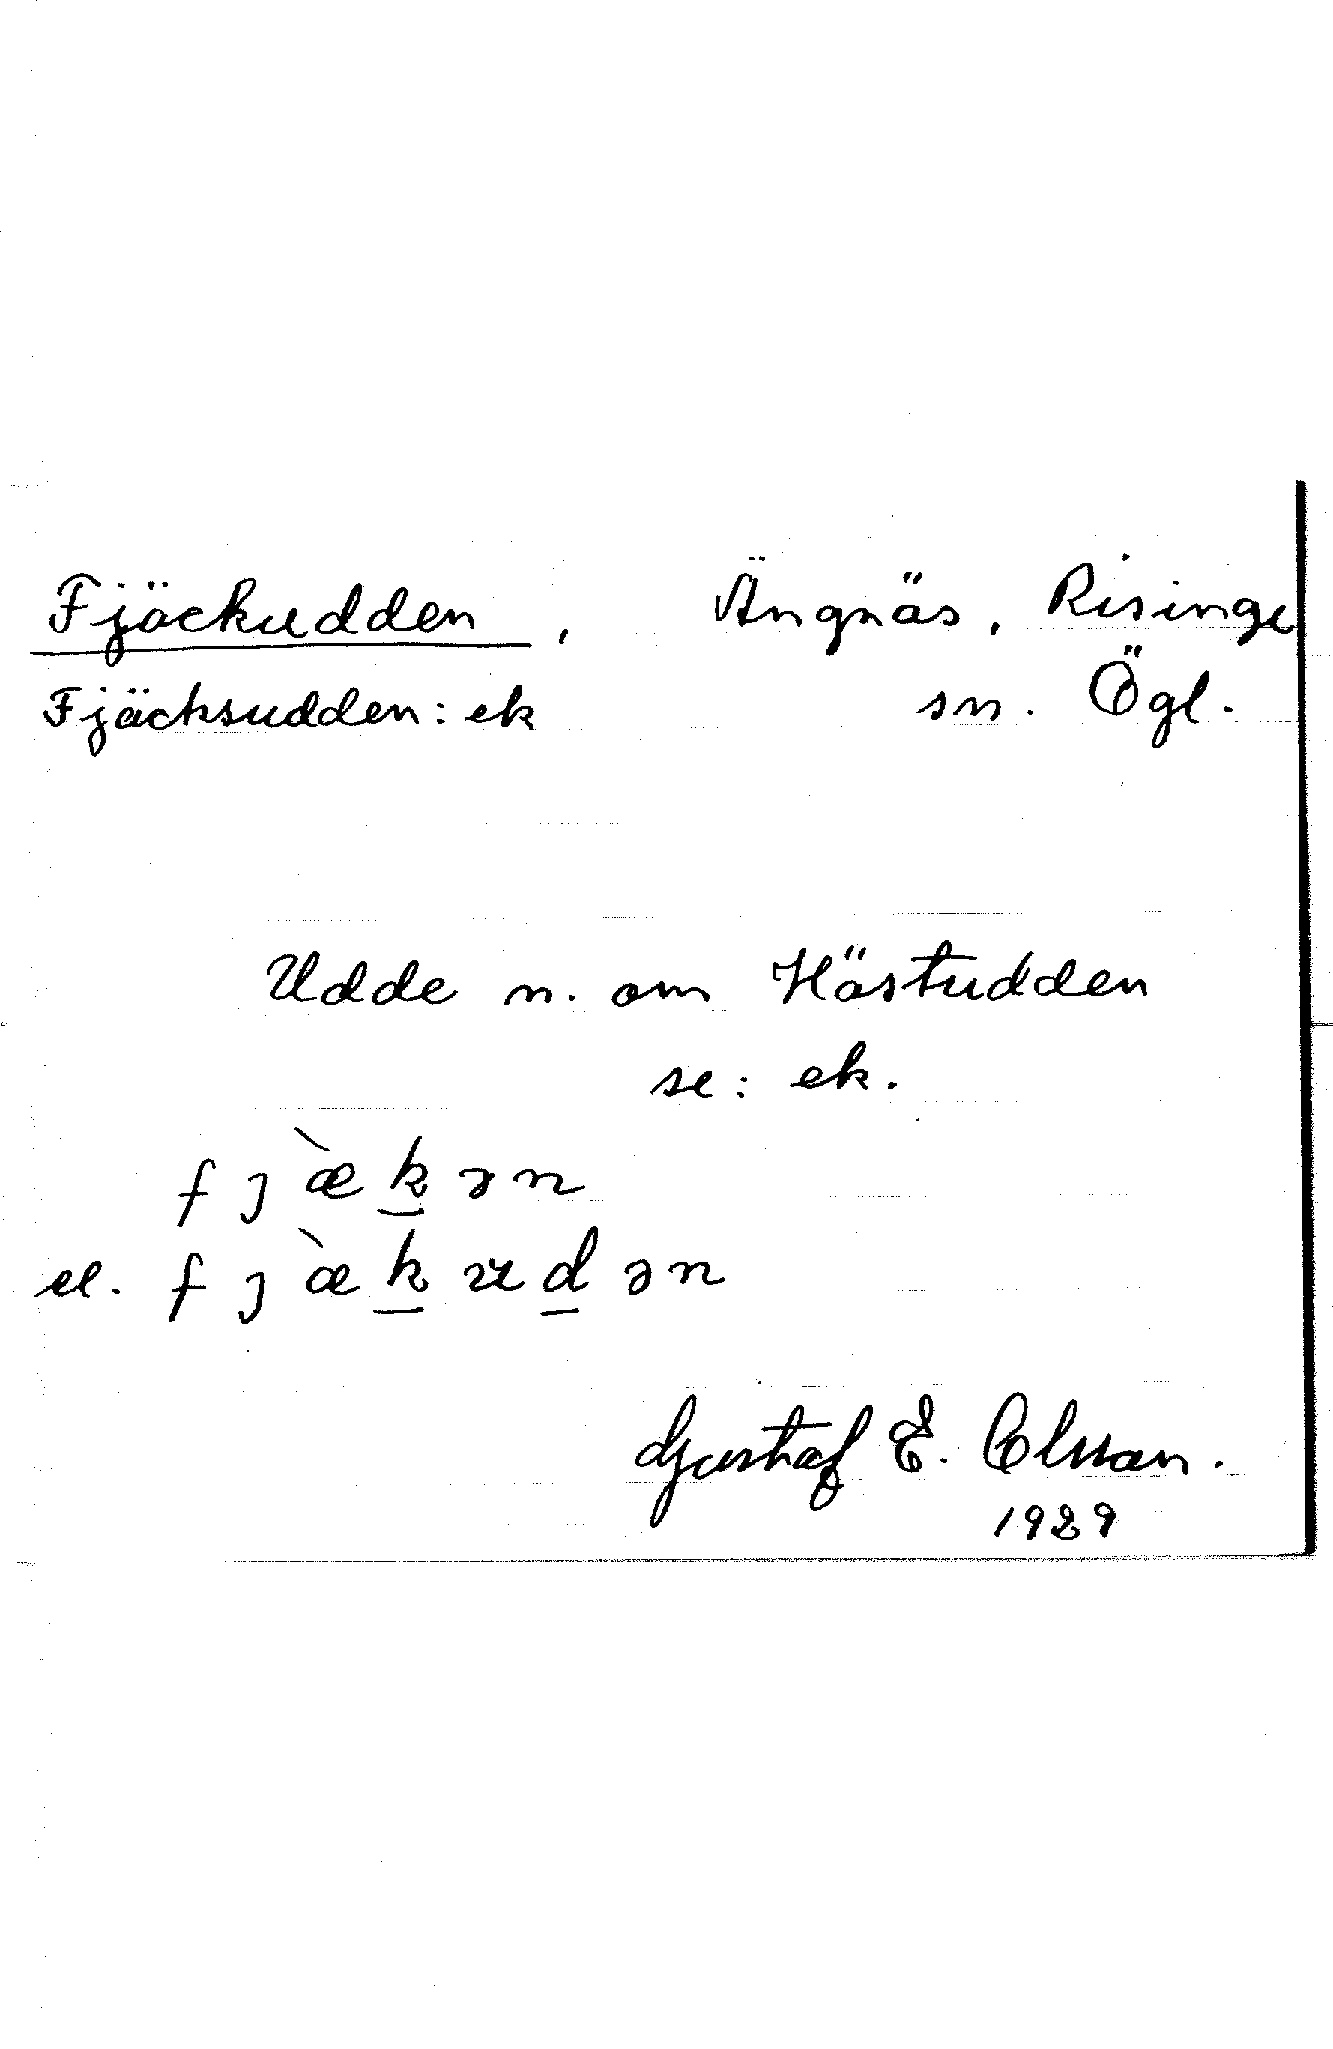 Fjäckudden, Ängnäs, Risinge
Fjäcksudden: ek sn. Ögl.
Udde n. om Hästudden
se: ek.
fjæ̀k̲ən
el. fjæ̀k̲ud̲ən
Gustaf E. Olsson.
1929